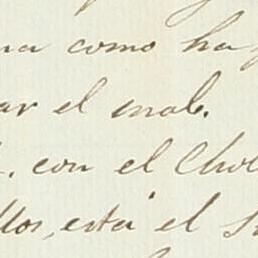 na como ha
ar el mal.
. con el Chol
llos, está el s